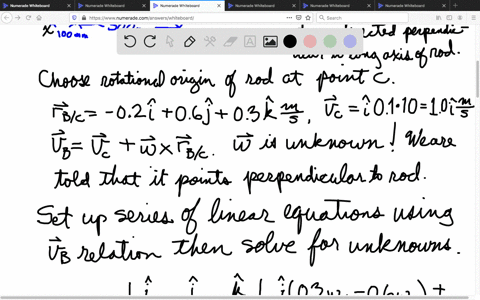 Numerade Whiteboard
Numerade Whiteboard
Numerade Whiteboard
Numerade Whiteboard
Numerade Whiteboard
https://www.numerade.com/answers/whiteboard/
x 100mm
perpendi-
long axis of rod.
Choose rotational origin of rod at point C.
r⃗B/C = -0.2î + 0.6ĵ + 0.3k̂ m/s, V⃗c = î 0.1·10 = 1.0î m/s
V⃗B = V⃗c + ω⃗ × r⃗B/C. ω⃗ is unknown! We are
told that it points perpendicular to rod.
Set up series of linear equations using
V⃗B relation then solve for unknowns.